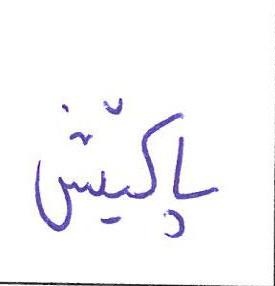 پاکێش